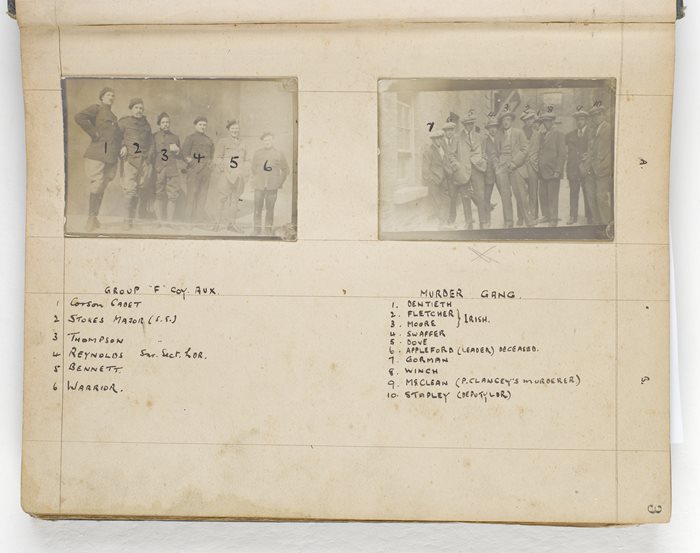 1 2 3 4 5 6
GROUP "F" COY. AUX.
1 Corson CADET
2 STOKES MAJOR (S.S.)
3 THOMPSON
4 REYNOLDS Sec. Sect. LDR.
5 BENNETT.
6 WARRIOR.
7 3 2 8 10
MURDER GANG.
1. DENTIETH
2. FLETCHER } IRISH.
3. MOORE
4. SWAFFER
5. DOVE
6. APPLEFORD (LEADER) DECEASED.
7. GORMAN
8. WINCH
9. McCLEAN (P. CLANCEY'S MURDERER)
10. STAPLEY (DEPUTY LDR)
A.
3